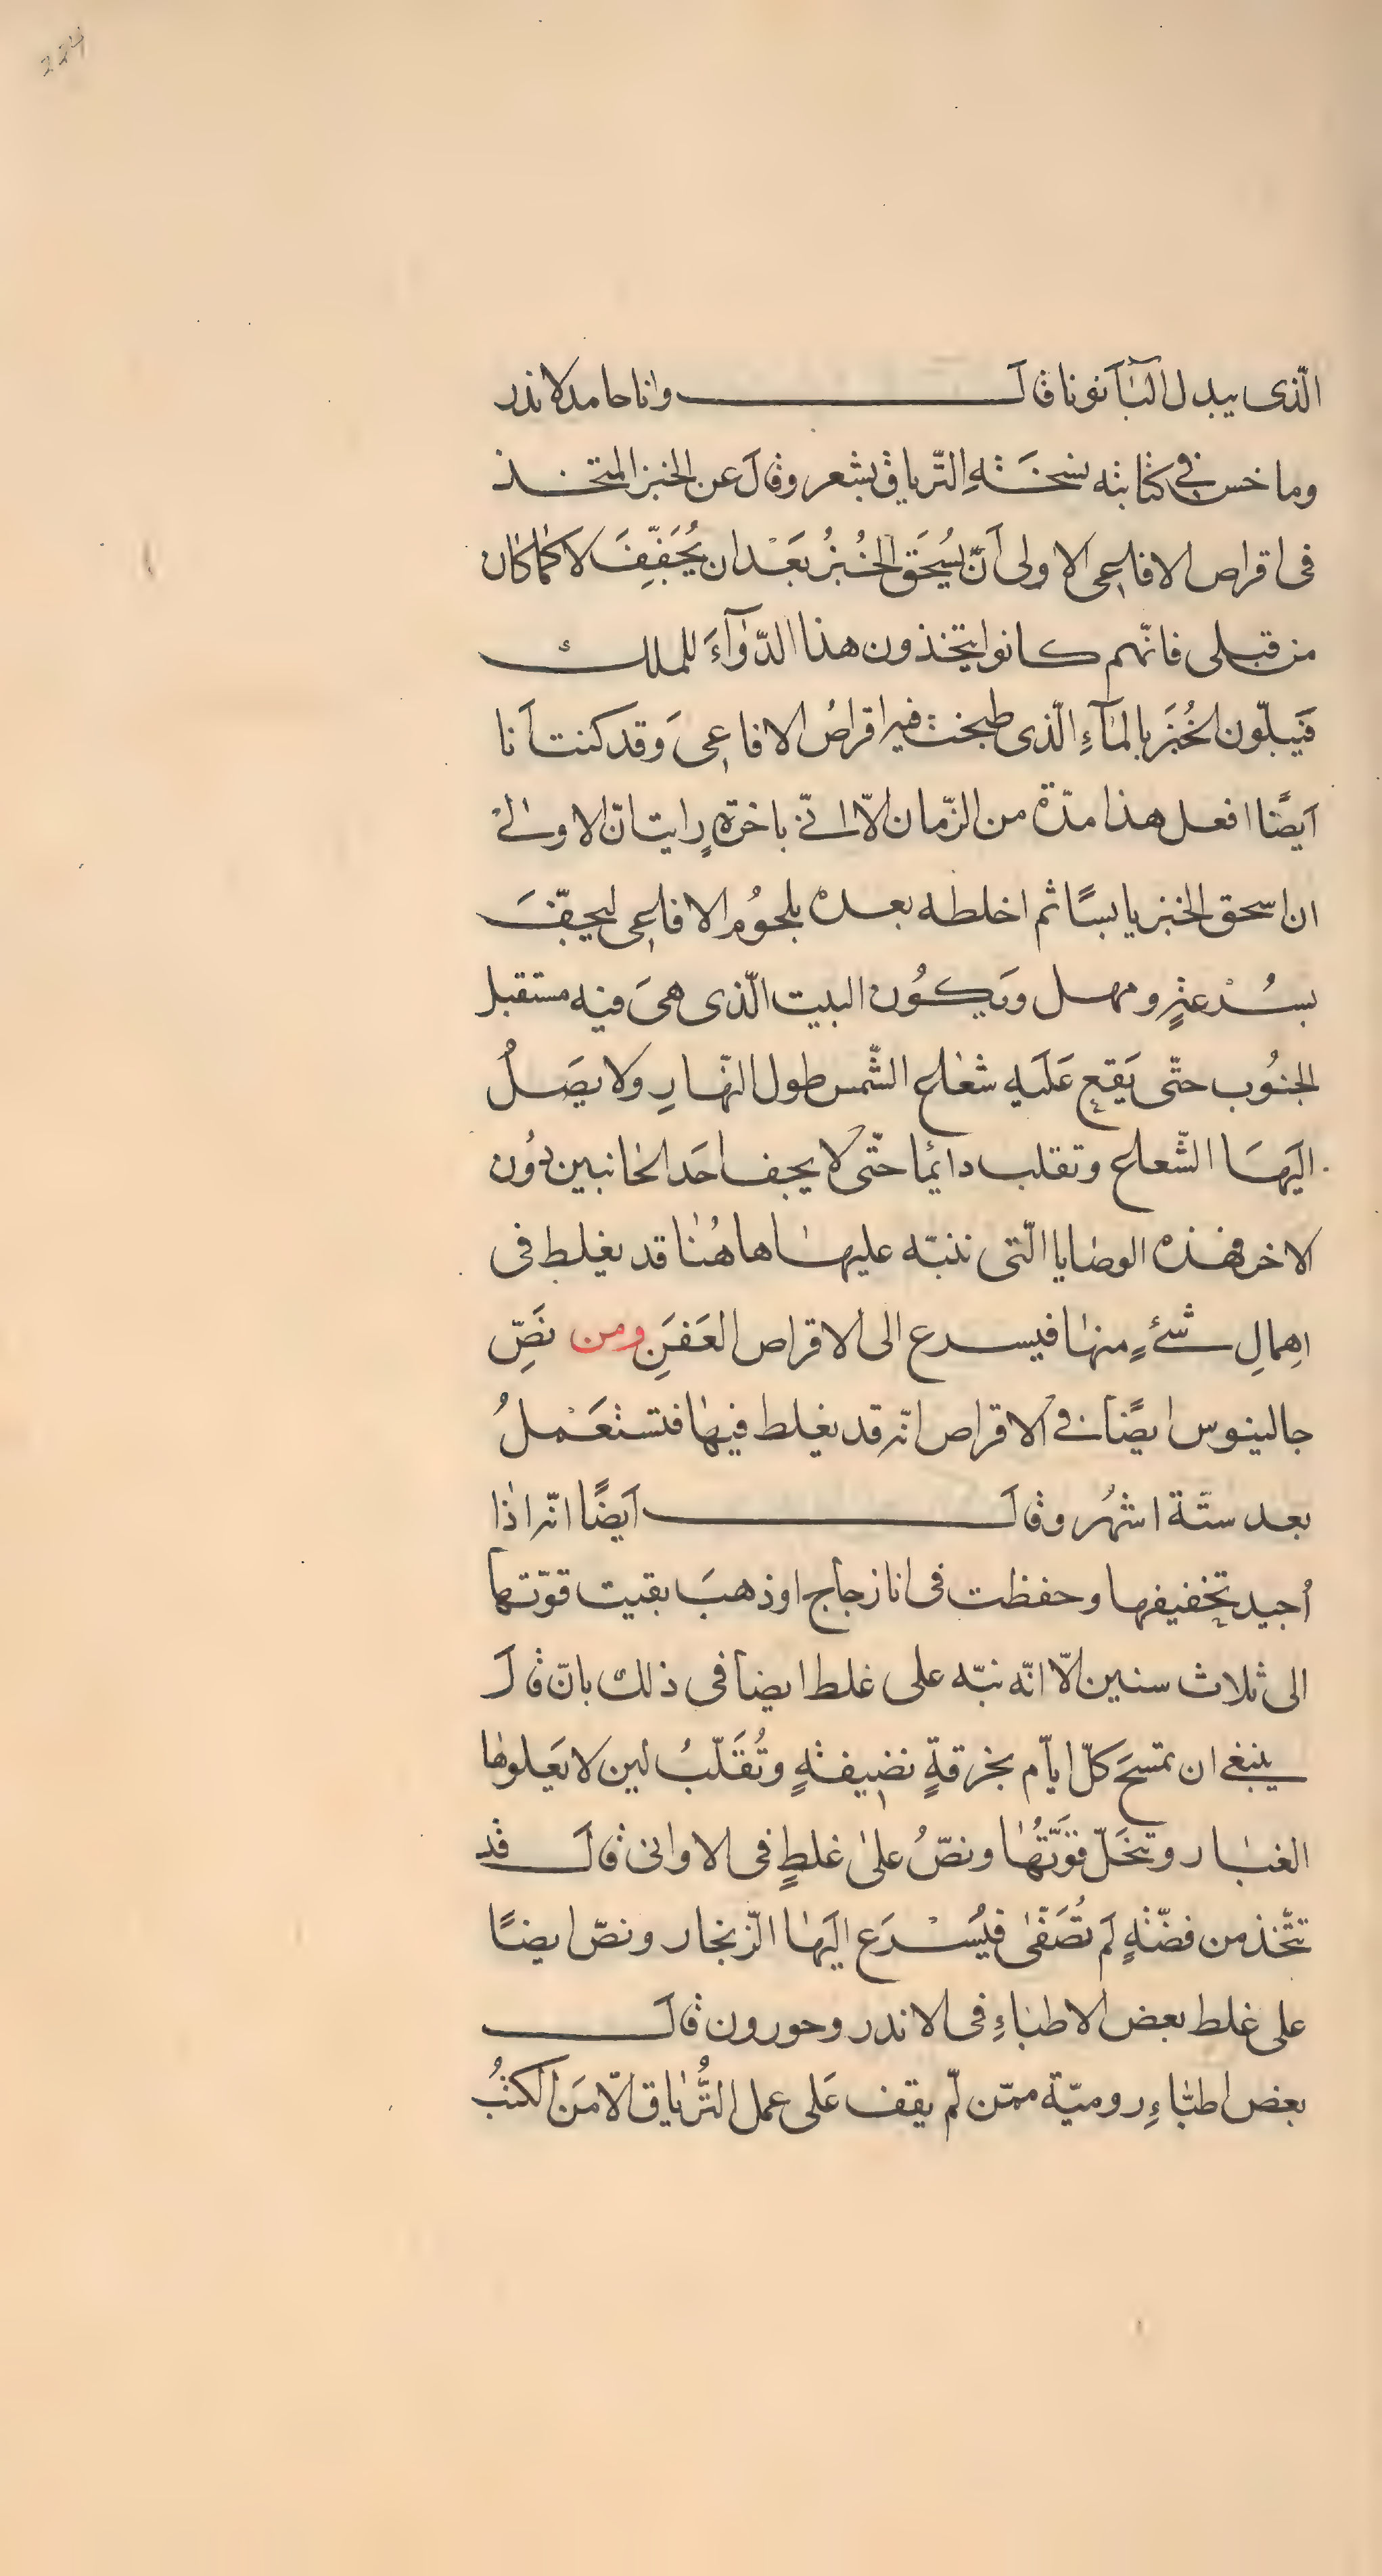 224
الّذى يبدل البٓانونا قالَ وانا حامد لاندر
وما خس في كتابته نسخَتهِ التّرياق بشعر وقالَ عن الخبز المتخذ
فى اقراص الافاعى الاولى انّ يُسحَق الخُبزُ بَعْد ان يُجَفِّفَ لا كما كان
من قبلى فانّهم كانوا يتخذون هذا الدّوآءَ للملك
فَيبلّون الخُبزَ بالمآءِ الّذى طبخت فيه اقراصُ الافاعىَ وَقد كنت اَنا
اَيضًا افعل هذا مدّة من الزّمان الّا انّى باخرةٍ رايت انّ الاولىٰ
ان اسحق الخبز يابسًا ثم اخلطه بعده بلحُوم الافاعى ليجفّفَ
بسُرْعةٍ ومهل ويَكُون البيت الّذى هىَ فيه مستقبل
الجنُوب حتّى يَقع عَلَيه شعٰاع الشّمس طول النّهارِ ولا يصَلُ
اليَهَا الشّعاع وتقلب دائمًا حتّى لا يجف احَد الجانبين دُون
الاخر فهذه الوصٰايا الّتى ننبّه عليهٰا هاهُنٰا قد يغلط فى
اِهمالِ شئٍ منهٰا فيسرع الى الاقراص العَفَنِ ومن نصِّ
جالينوس ايضًا فى الاقراص انّه قد يغلط فيهٰا فتستعَْملُ
بعد ستّة اشهُر وقالَ اَيضًا انّه اذٰا
اُجيد تخفيفها وحفظت فى انا زجاج او ذهبَ بقيت قوّتها
الى ثلاث سنين الّا انّه نبّه على غلط ايضا فى ذلك بانّ قالَ
ينبغى ان تمسَح كلّ ايّام بخرقةٍ نضيفةٍ وتُقَلّبُ لين لا يَعلوهٰا
الغبٰار وتخَلّ قوَّتُهٰا ونصّ علىٰ غلطٍ فى الاوانى قالَ قد
تتّخذ من فضّةٍ لَم تُصَفّىٰ فيُسْرَع اليَهٰا الزّنجار ونصّ ايضًا
على غلط بعض الاطبٰاءِ فى الاندر وحورون قالَ
بعض اطبّٰاءِ روميّة ممّن لّم يقف عَلى عمل التُّرياق الّا مَن الكتبُ